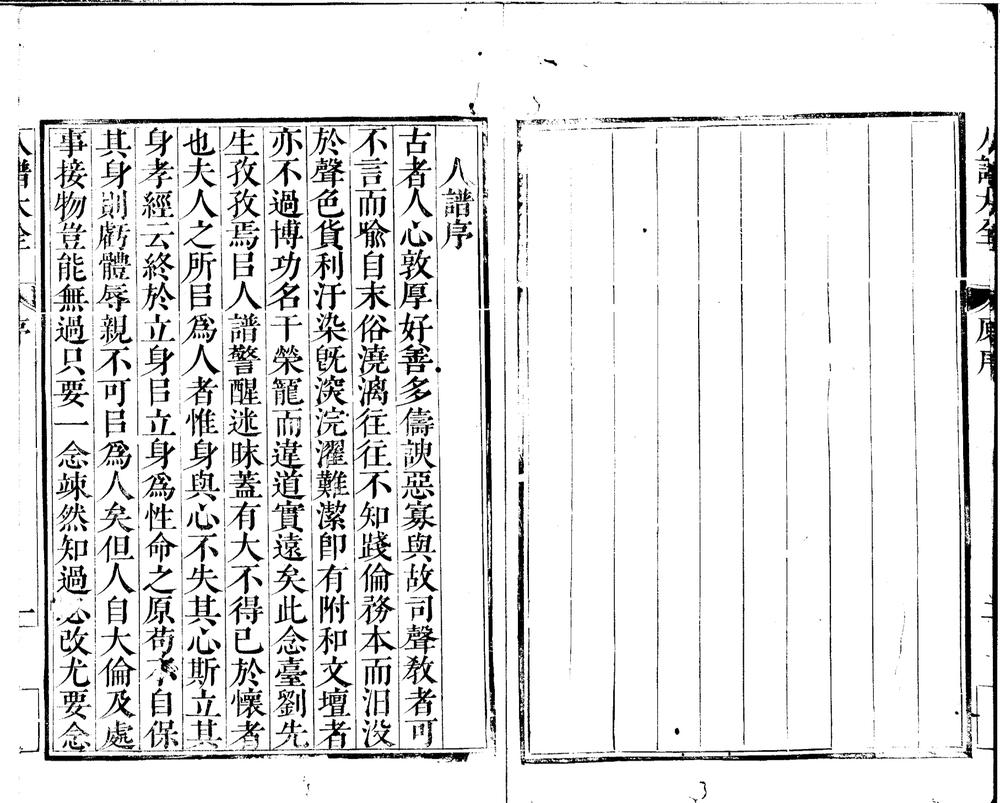 人譜大全
原序
人譜序
古者人心敦厚好善多儔諛惡寡與故司聲教者可
不言而喻自末俗澆漓往往不知踐倫務本而汨没
於聲色貨利汙染旣深浣濯難潔卽有附和文壇者
亦不過博功名干榮寵而違道實遠矣此念臺劉先
生孜孜焉㠯人譜警醒迷昧蓋有大不得已於懷者
也夫人之所㠯爲人者惟身與心不失其心斯立其
身孝經云終於立身㠯立身爲性命之原苟不自保
其身則虧體辱親不可㠯爲人矣但人自大倫及處
事接物豈能無過只要一念竦然知過必改尤要念
人譜大全
序
一